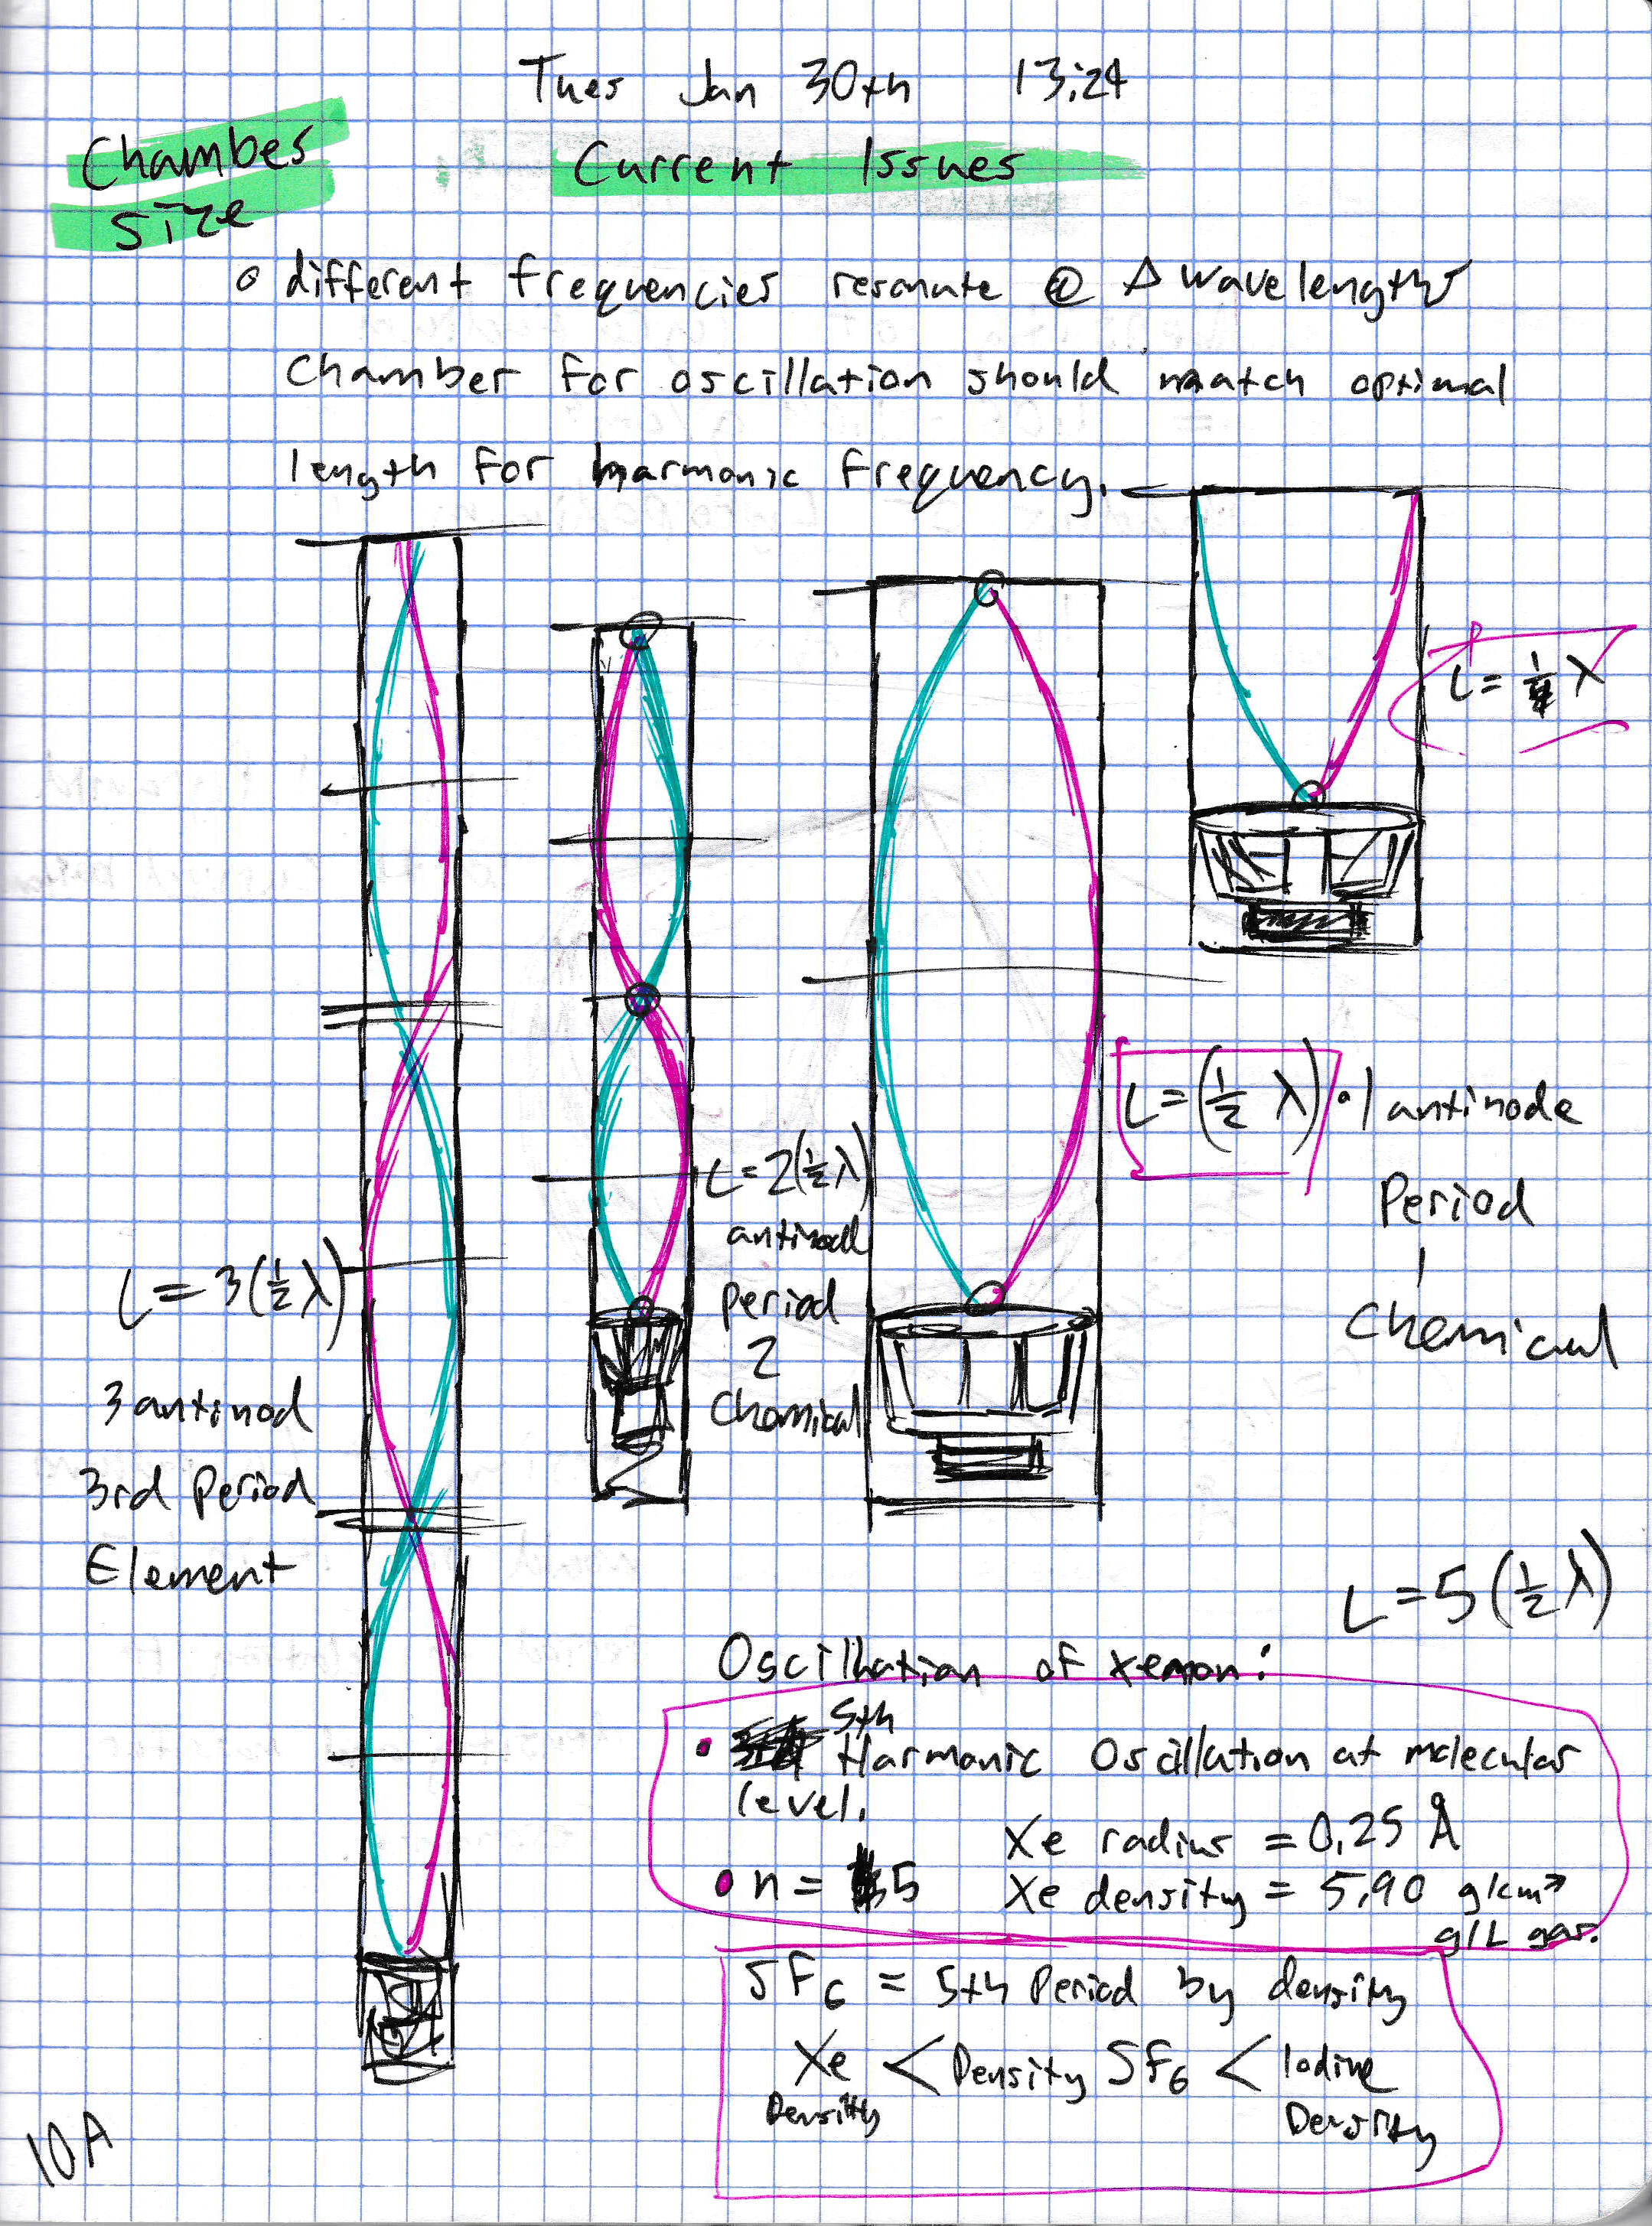 Tues Jan 30th 13:24
Chamber Size
Current Issues
○ different frequencies resonate @ Δ wavelengths
Chamber for oscillation should match optimal
length for harmonic frequency.
L = 1/4 λ
L = (1/2 λ) • 1 antinode
Period
1
Chemical
L = 2(1/2 λ)
antinode
Period
2
Chemical
L = 3(1/2 λ)
3 antinod
3rd Period
Element
L = 5(1/2 λ)
Oscillation of xenon:
• 5th Harmonic Oscillation at molecular
level.
Xe radius = 0.25 Å
• n = 5 Xe density = 5.90 g/cm³
g/L gas.
SF6 = 5th Period by density
Xe < Density SF6 < Iodine
Density Density
10A